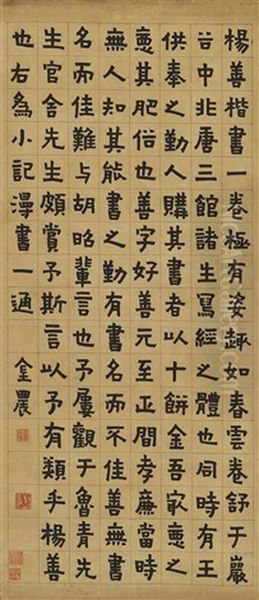 楊善楷書一卷極有姿趣如春雲卷舒于巖
谷中非唐三館諸生寫經之體也同時有王
供奉之勤人購其書者以十餅金吾㝡惡之
惡其肥俗也善字好善元至正間孝廉當時
無人知其能書之勤有書名而不佳善無書
名而佳難与胡昭輩言也予屢觀于魯青先
生官舍先生頗賞予斯言以予有類乎楊善
也右為小記漫書一通 金農